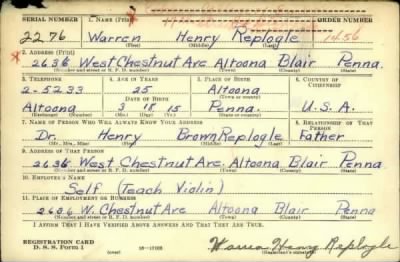 SERIAL NUMBER 1. NAME (Print) ORDER NUMBER
2276 Warren Henry Replogle 1456
(First) (Middle) (Last)
2. ADDRESS (Print)
2636 West Chestnut Ave Altoona Blair Penna.
(Number and street or R. F. D. number) (Town) (County) (State)
3. TELEPHONE 4. AGE IN YEARS 5. PLACE OF BIRTH 6. COUNTRY OF CITIZENSHIP
2-5233 25 Altoona
DATE OF BIRTH (Town or county)
Altoona 3 18 15 Penna. U.S.A.
(Exchange) (Number) (Mo.) (Day) (Yr.) (State or country)
7. NAME OF PERSON WHO WILL ALWAYS KNOW YOUR ADDRESS 8. RELATIONSHIP OF THAT PERSON
Dr. Henry Brown Replogle Father
(Mr., Mrs., Miss) (First) (Middle) (Last)
9. ADDRESS OF THAT PERSON
2636 West Chestnut Ave. Altoona Blair Penna
(Number and street or R. F. D. number) (Town) (County) (State)
10. EMPLOYER'S NAME
Self (Teach Violin)
11. PLACE OF EMPLOYMENT OR BUSINESS
2636 W. Chestnut Ave Altoona Blair Penna
(Number and street or R. F. D. number) (Town) (County) (State)
I AFFIRM THAT I HAVE VERIFIED ABOVE ANSWERS AND THAT THEY ARE TRUE.
REGISTRATION CARD
D. S. S. Form 1 (over) Warren Henry Replogle
(Registrant's signature)